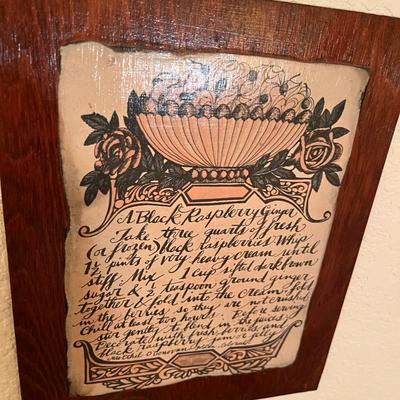 A Black Raspberry Ginger
Take three quarts of fresh
(or frozen) black raspberries. Whip
1½ pints of very heavy cream until
stiff. Mix 1 cup sifted dark brown
sugar & ½ teaspoon ground ginger
together & fold into the cream - fold
in the berries so they are not crushed
Chill at least two hours. Before serving
stir gently to blend in the juices.
Decorate with fresh berries and
black raspberry jam or jelly.